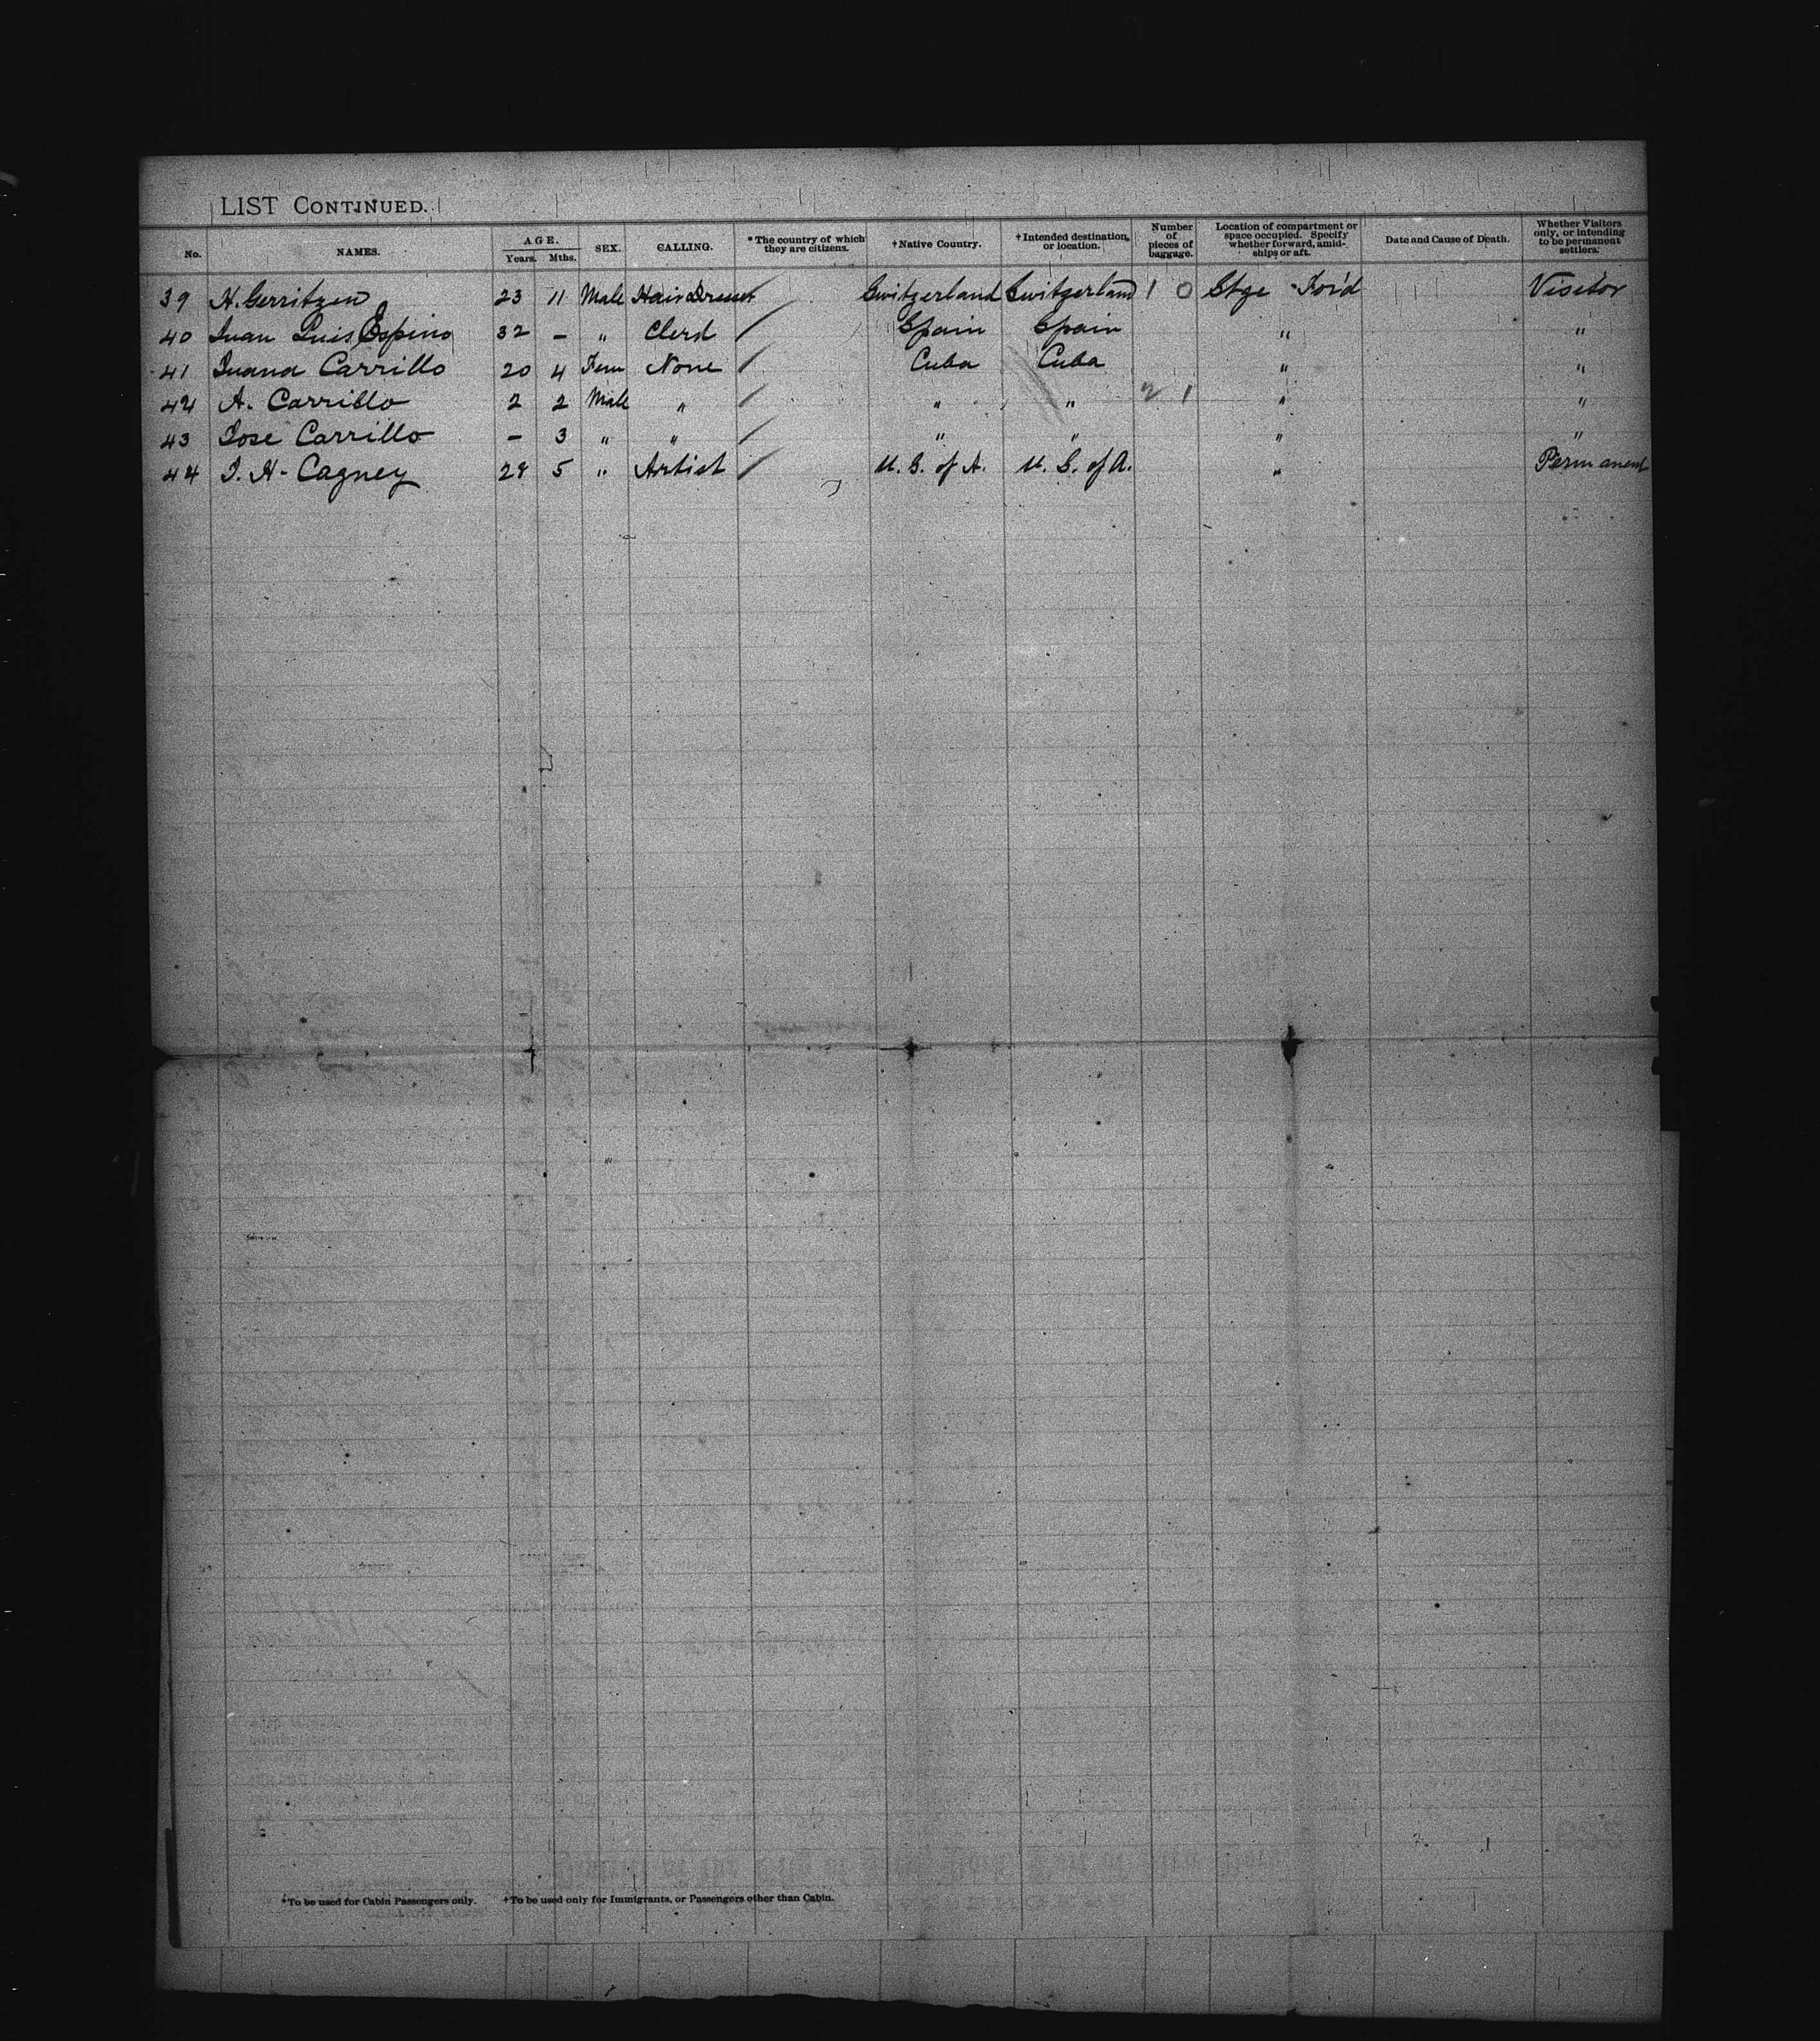 LIST CONTINUED.
No. NAMES. AGE. Years. Mths. SEX. CALLING. *The country of which they are citizens. †Native Country. †Intended destination, or location. Number of pieces of baggage. Location of compartment or space occupied. Specify whether forward, amidships or aft. Date and Cause of Death. Whether Visitors only, or intending to be permanent settlers.
39 H. Gerritzen 23 11 Male Hair Dresser / Switzerland Switzerland 1 0 Stge For'd Visitor
40 Juan Luis Espino 32 – " Clerk / Spain Spain " "
41 Juana Carrillo 20 4 Fem None / Cuba Cuba " "
42 A. Carrillo 2 2 Male " / " " 2 1 " "
43 Jose Carrillo – 3 " " / " " " "
44 J. H. Cagney 28 5 " Artist / U. S. of A. U. S. of A. " Permanent
*To be used for Cabin Passengers only. †To be used only for Immigrants, or Passengers other than Cabin.